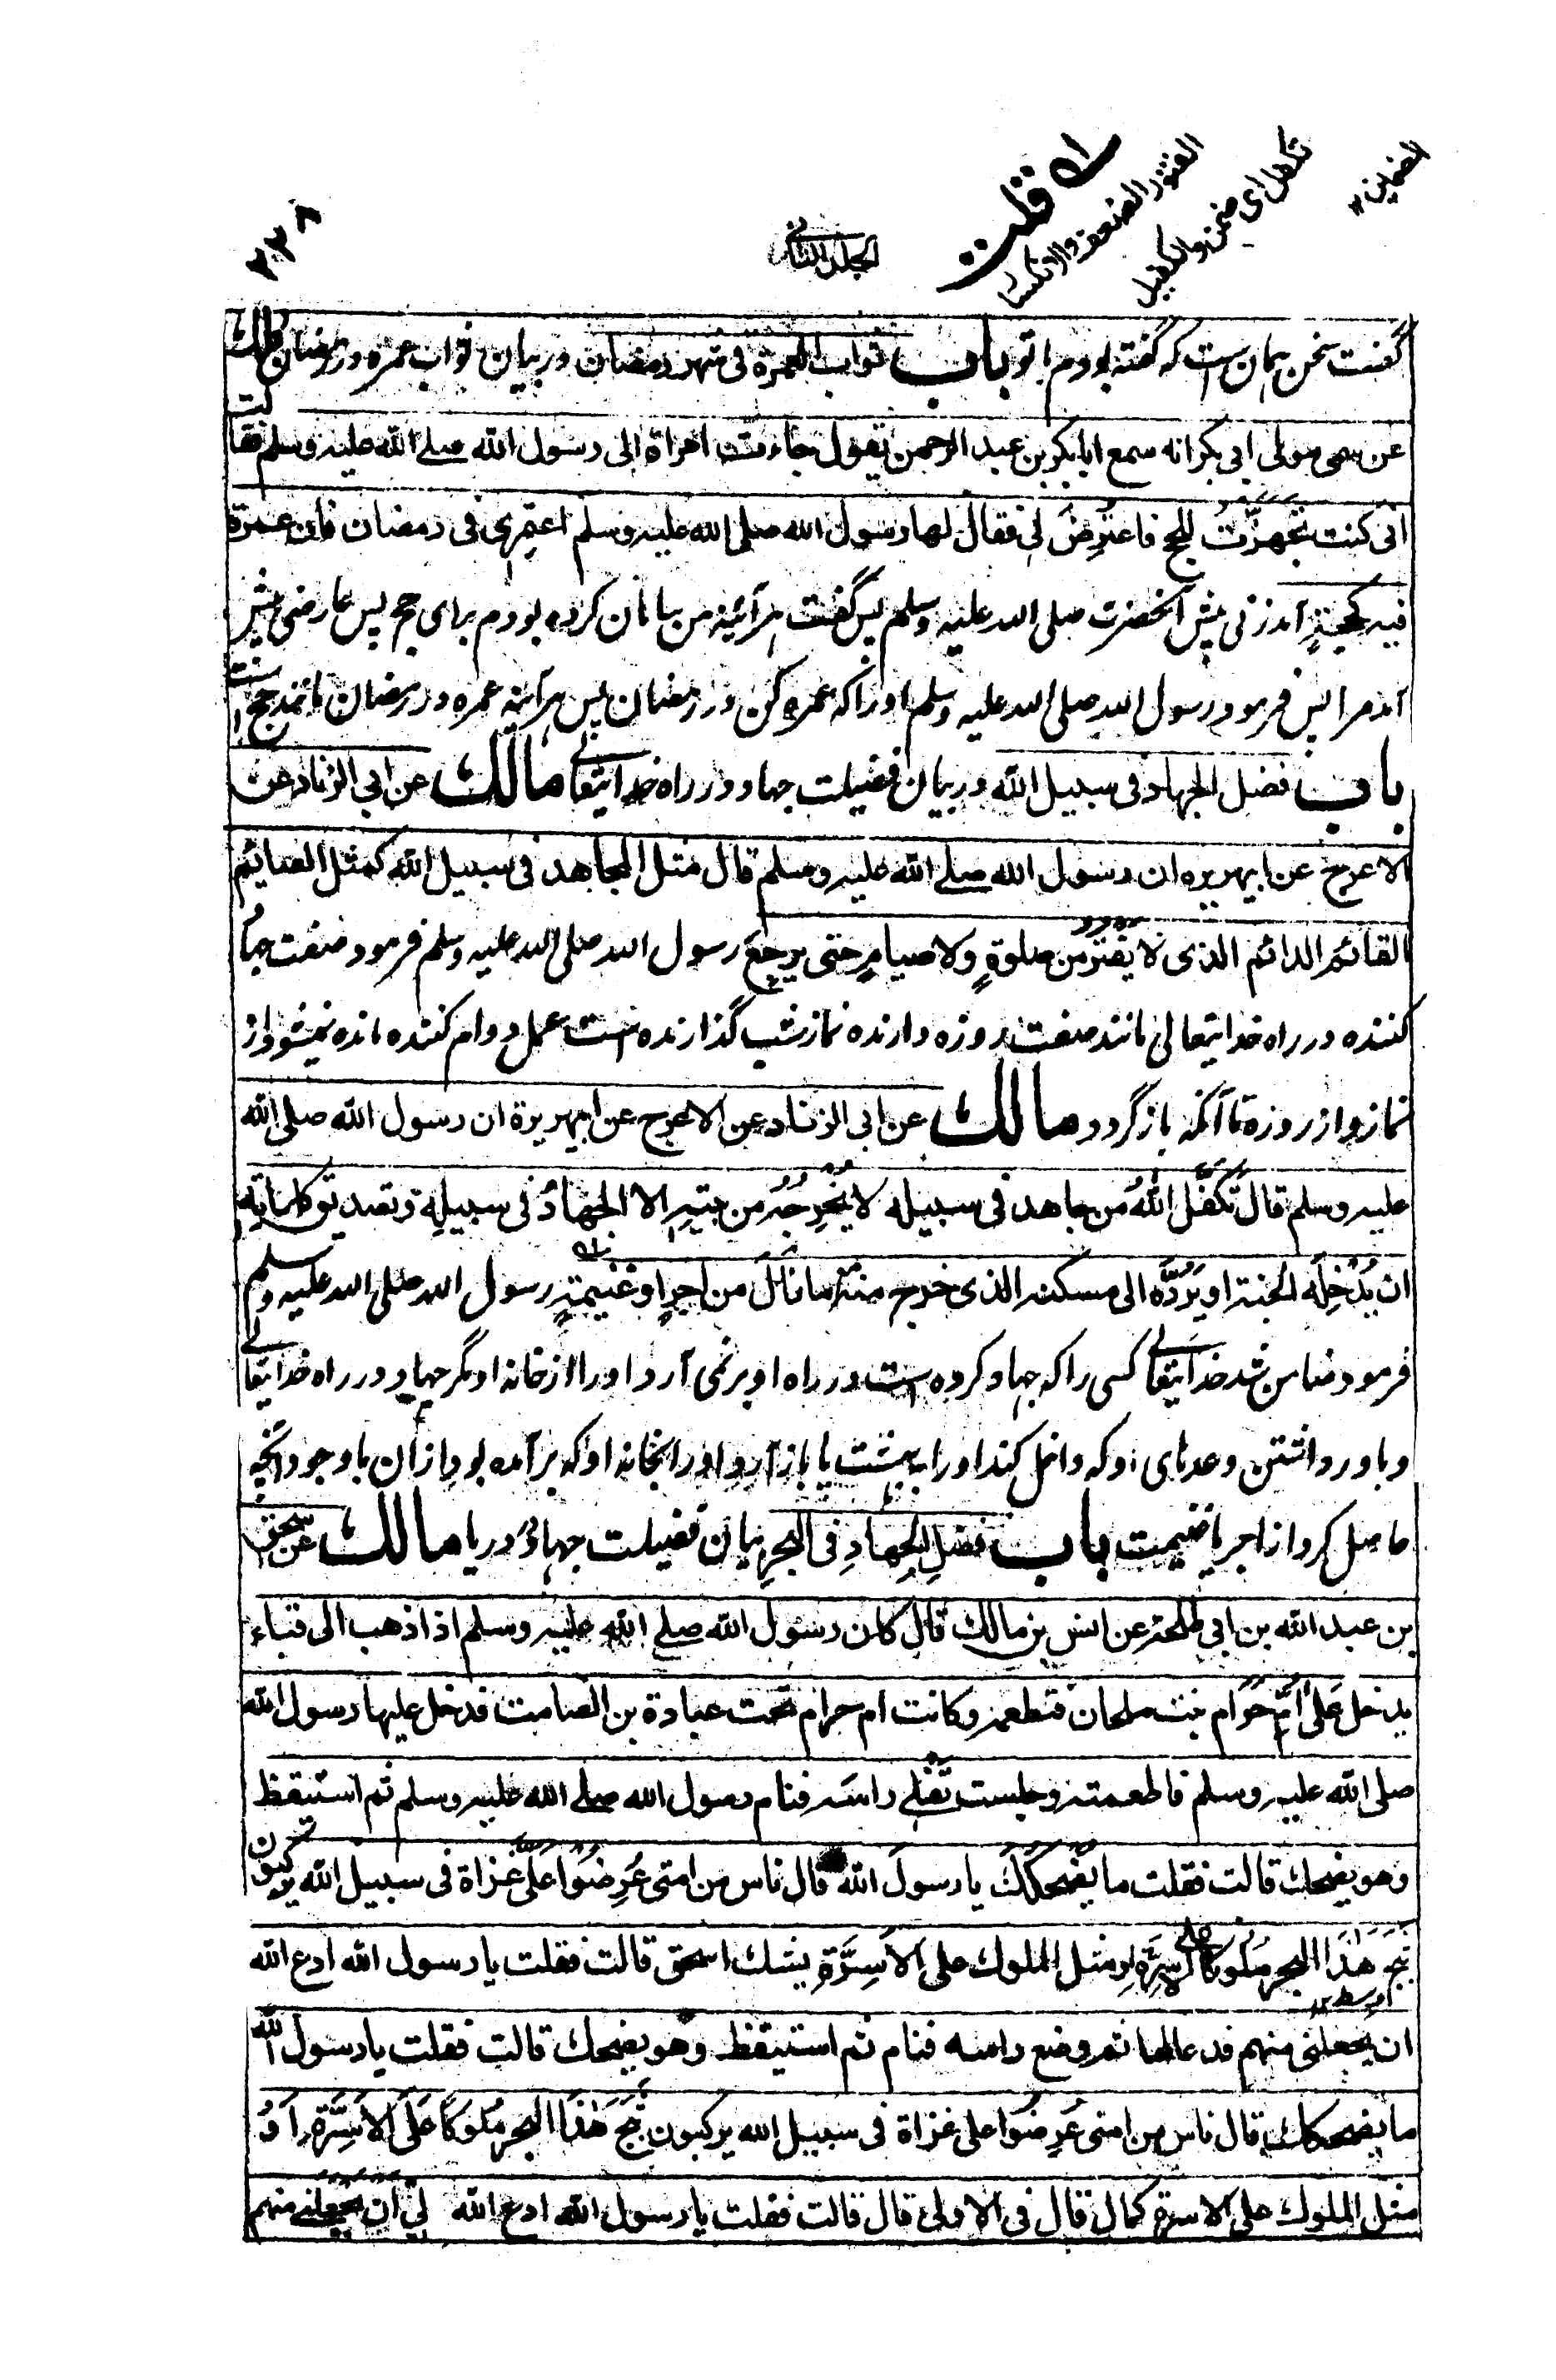 الضمين ۱۲
تكفل ای ضمن والكفيل
الفتور الضعف والانكسار
قلت
الجلد الثانی
۳۳۸
گفت سخن همان ست که گفته بودم با تو باب ثواب العمرة فی شهر رمضان در بیان ثواب عمره در رمضان مالك
عن سمی مولی ابی بکر انه سمع ابا بکر بن عبد الرحمن یقول جاءت امراة الی رسول الله صلے الله علیه وسلم فقالت
انی کنت تَجَهَّزْتُ للحج فاعتُرِضَ لی فقال لها رسول الله صلی الله علیه وسلم اعتمِری فی رمضان فان عمرة
فیه کحجةٍ آمد زنی پیش آنحضرت صلی الله علیه وسلم پس گفت هر آئینه من سامان کرده بودم برای حج پس عارضی پیش
آمد مرا پس فرمود رسول الله صلی الله علیه وسلم او را که عمره کن در رمضان پس هر آئینه عمره در رمضان مانند حج ست
باب فضل الجهاد فی سبیل الله در بیان فضیلت جهاد در راه خدایتعالے مالك عن ابی الزناد عن
الاعرج عن ابیهریره ان رسول الله صلے الله علیه وسلم قال مثل المجاهد فی سبیل الله کمثل الصائم
القائم الدائم الذی لا یفتُرُ من صلوةٍ ولا صیامٍ حتی یرجِعَ رسول الله صلی الله علیه وسلم فرمود صفت جهاد
کننده در راه خدایتعالی مانند صفت روزه دارنده نماز شب گذارنده ست عمل دوام کننده مانده نمیشود از
نماز و از روزه تا آنکه باز گردد مالك عن ابی الزناد عن الاعرج عن ابیهریرة ان رسول الله صلی الله
علیه وسلم قال تَکَفَّلَ اللهُ من جاهد فی سبیله لا یُخْرِجُهُ من بیتهِ الا الجهادُ فی سبیلِه وتصدیق کلماتِه
ان یُدْخِلَه الجنة او یَرُدَّه الی مسکنه الذی خرج منه مع ما نَالَ من اجرٍ او غنیمةٍ رسول الله صلی الله علیه وسلم
فرمود ضامن شد خدایتعالے کسی را که جهاد کرده ست در راه او بر نمی آرد او را از خانه او مگر جهاد در راه خدایتعالے
و باور داشتن وعدهای او که داخل کند او را به بهشت یا باز آرد او را بخانه او که بر آمده بود از آن با وجود آنچه
حاصل کرد از اجر یا غنیمت باب فضلِ الجهادِ فی البحرِ بیان فضیلت جهاد در دریا مالك عن اسحق
بن عبد الله بن ابی طلحة عن انس بن مالك قال کان رسول الله صلے الله علیه وسلم اذا ذهب الی قباء
یدخل عَلیٰ اُمِّ حَرَام بنت ملحان فتطعمه وکانت ام حرام تحت عبادة بن الصامت فدخل علیها رسول الله
صلی الله علیه وسلم فاطعمته وجلست تَفْلِے راسَه فنام رسول الله صلے الله علیه وسلم ثم استیقظ
وهو یضحك قالت فقلت ما یُضْحِكُكَ یا رسولَ الله قال ناس من امتی عُرِضُوْا عَلَیَّ غزاة فی سبیل الله یرکبون
ثَبَجَ هٰذا البحر مُلُوکًا علی الاسِرَّةِ او مثل الملوك علی الاَسِرَّةِ یشك اسحق قالت فقلت یا رسول الله ادع الله
ای وسطه ۱۲
ان یجعلنی منهم فدعا لها ثم وضع راسه فنام ثم استیقظ وهو یضحك قالت فقلت یا رسول الله
ما یضحکك قال ناس من امتی عُرِضُوا علی غزاة فی سبیل الله یرکبون ثَبَجَ هٰذا البحر مُلوکًا عَلَی الاَسِرَّةِ اَوْ
مثل الملوك علی الاسرة کما قال فی الاولی قال قالت فقلت یا رسول الله ادع الله لِی اَن یَّجْعَلَنِے منهم